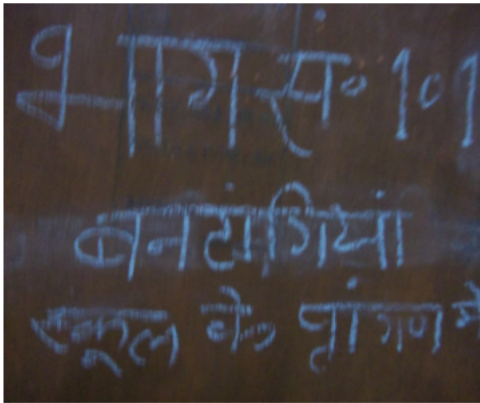 भाग सं० 101
बनटांगियां
स्कूल के प्रांगण मे